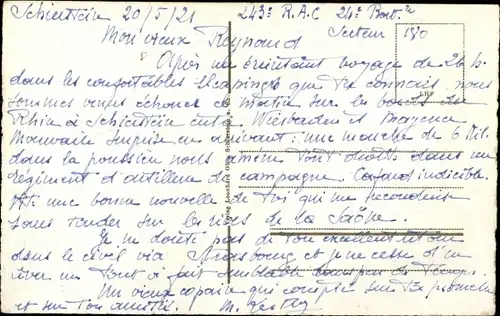 Schierstein 20/5/21 243e R.A.C 24e Bat.ie
Mon vieux Reynaud Secteur 180
Après un éreintant voyage de 26 h.
dans les confortables que tu connais, nous
sommes venus échouer ce matin sur les bords du
Rhin à Schierstein entre Wiesbaden et Mayence
Mauvaise surprise en arrivant; une marche de 6 Kil.
dans la poussière nous amène tout droit dans un
régiment d'artillerie de campagne. Cafard indicible.
une bonne nouvelle de toi qui me reconduise
sans tarder sur les rives de la Saône.
Je ne doute pas de ton excellent retour
dans le civil via Strasbourg et je ne cesse d'en
rêver un tout à fait semblable
Un vieux copain qui compte sur ta promesse
et sur ton amitié. M.